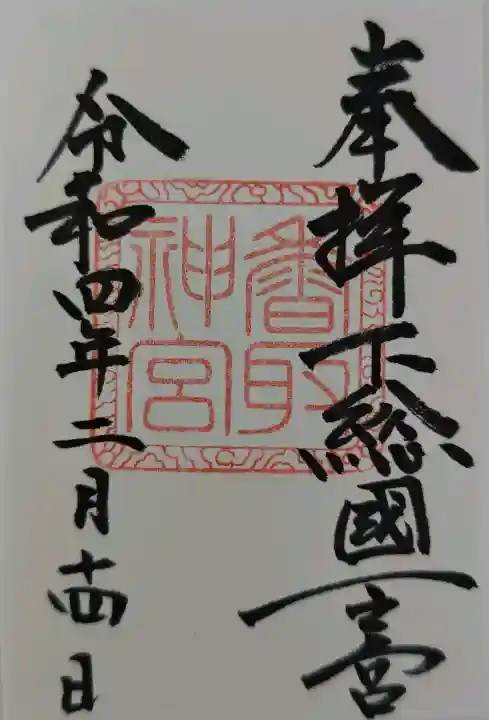 奉拝下総國一宮
香取神宮
令和四年二月十四日